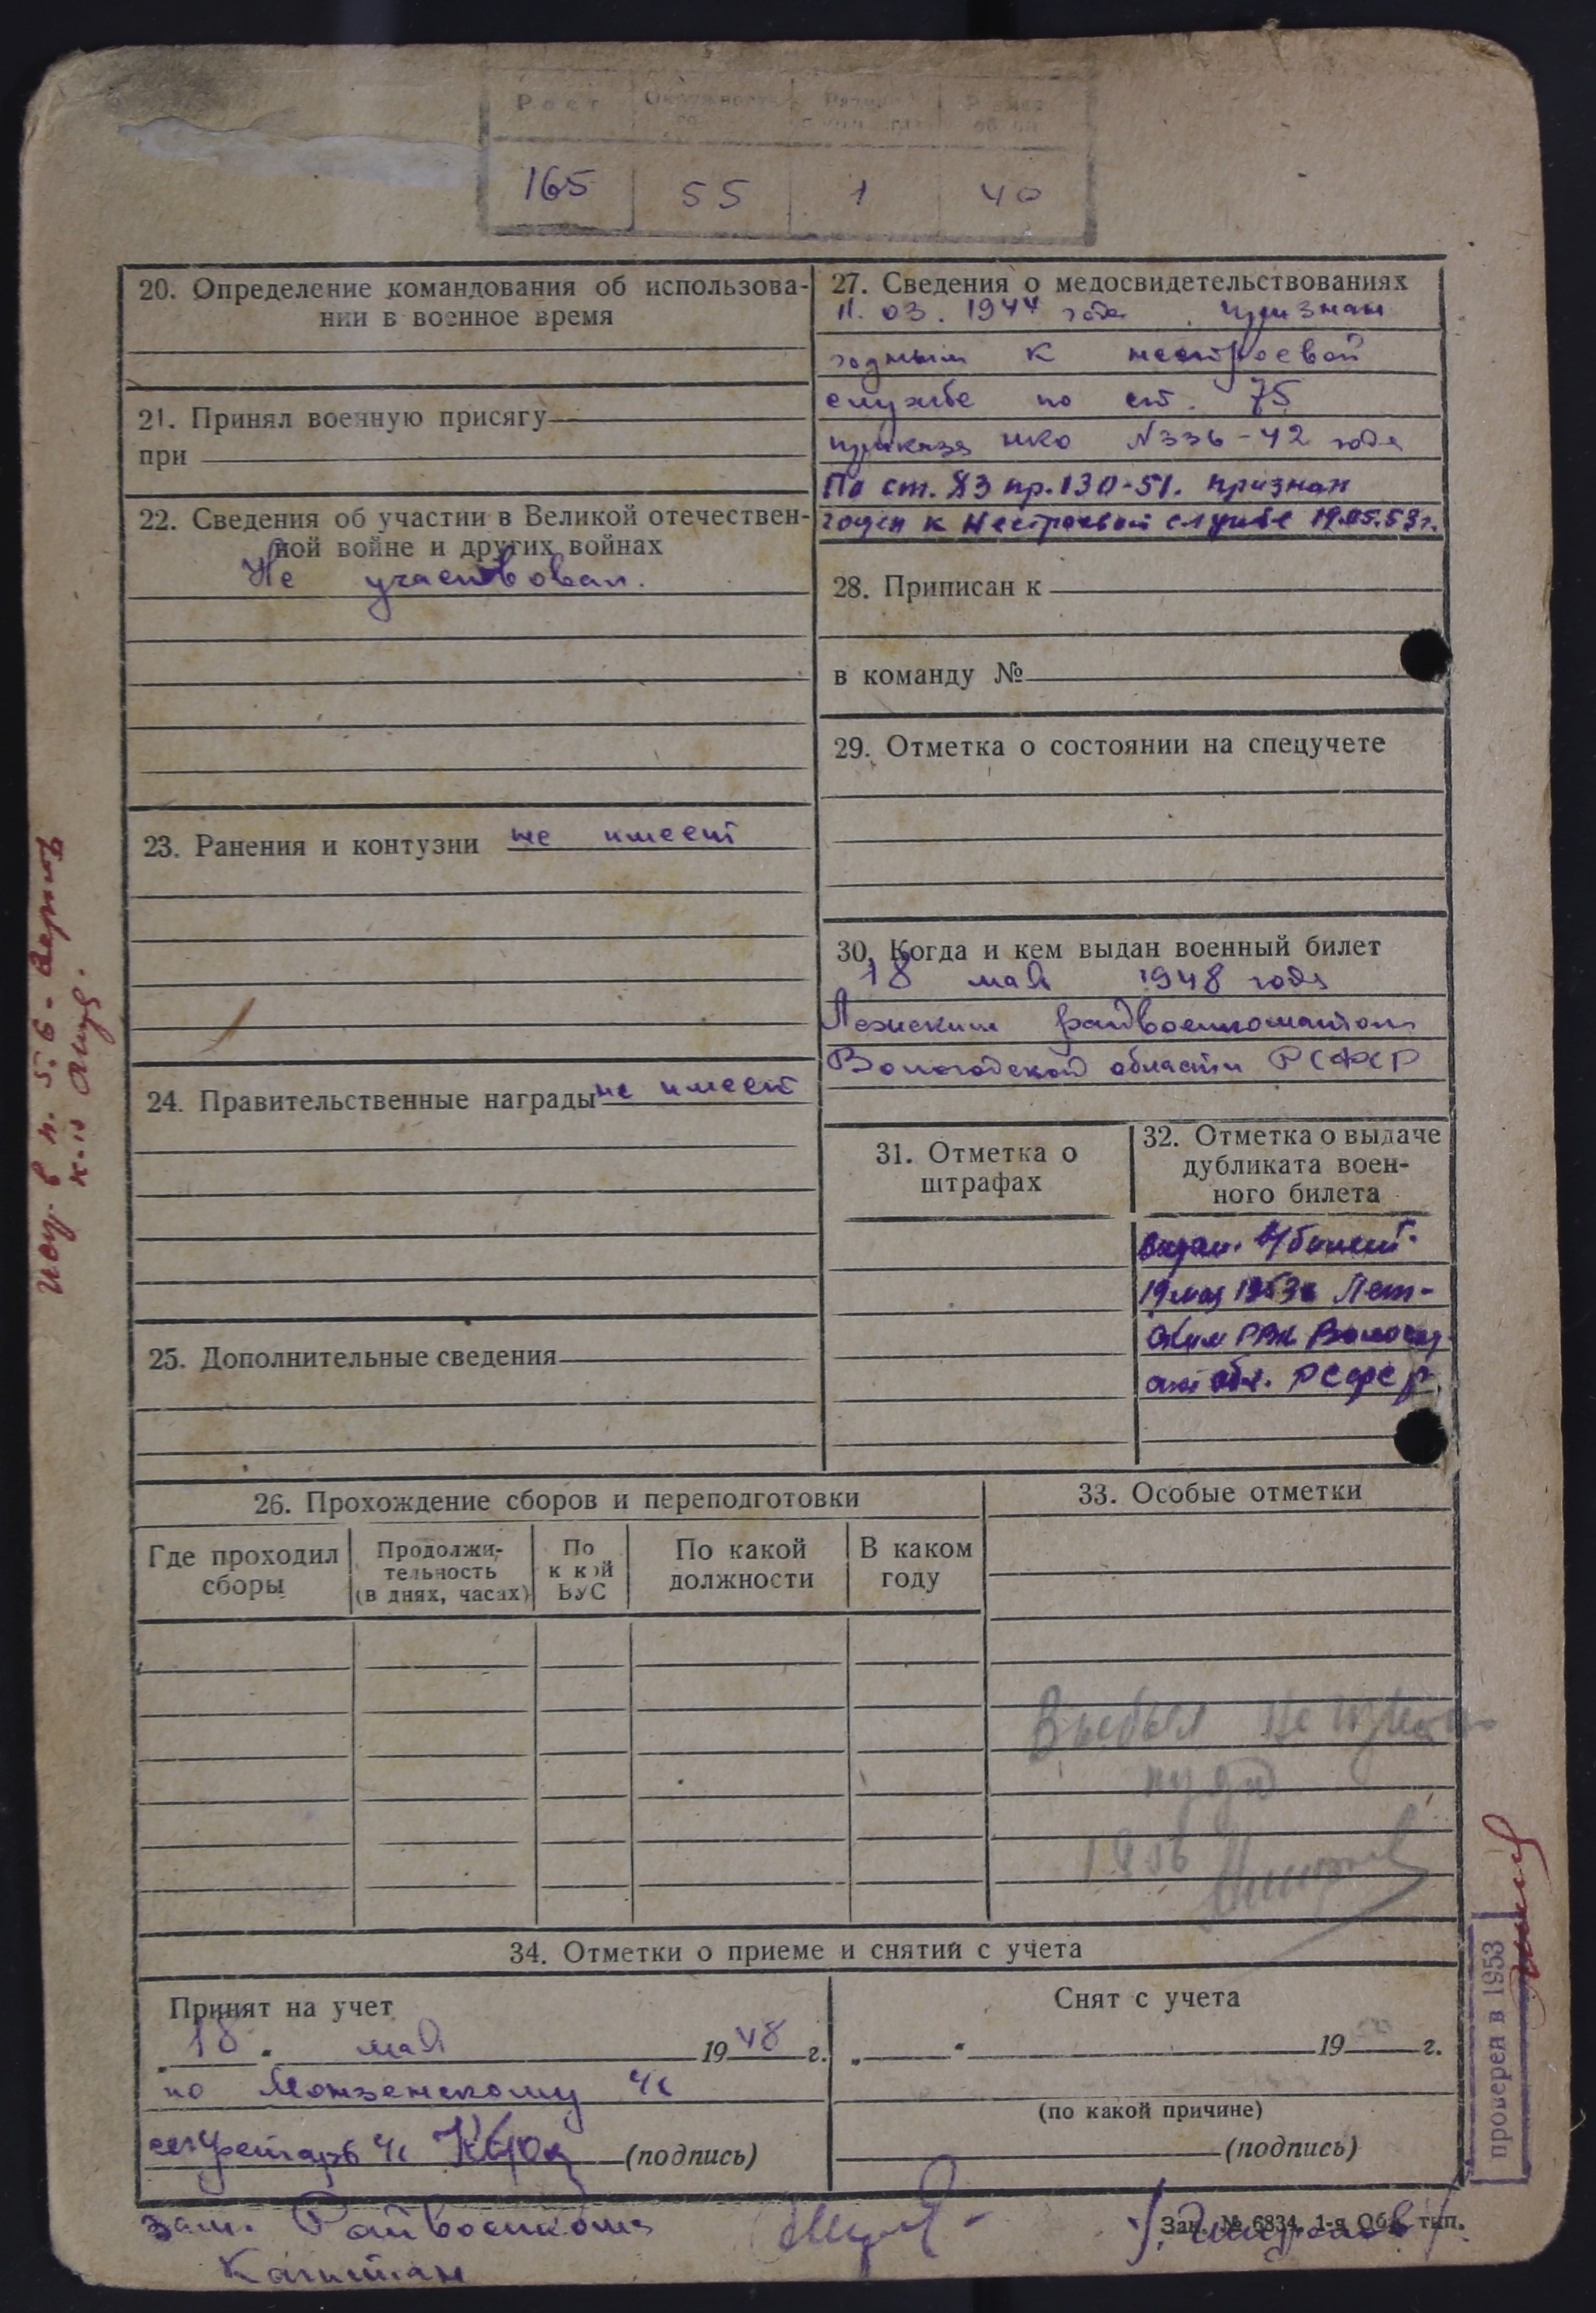 Рост Окружность Размер
165 55 1 40
20. Определение командования об использова-
нии в военное время
21. Принял военную присягу
при
22. Сведения об участии в Великой отечествен-
ной войне и других войнах
Не участвовал.
23. Ранения и контузии не имеет
24. Правительственные награды не имеет
25. Дополнительные сведения
27. Сведения о медосвидетельствованиях
11. 03. 1944 года признан
годным к нестроевой
службе по ст. 75
приказа НКО N336-42 года
По ст. 83 пр. 130-51. признан
годен к нестроевой службе 19.05.53г.
28. Приписан к
в команду №
29. Отметка о состоянии на спецучете
30. Когда и кем выдан военный билет
18 мая 1948 года
райвоенкоматом
Вологодской области РСФСР
31. Отметка о
штрафах
32. Отметка о выдаче
дубликата воен-
ного билета
19 мая 1953г
ским РВК Вологод
обл. РСФСР
26. Прохождение сборов и переподготовки
Где проходил
сборы
Продолжи-
тельность
(в днях, часах)
По
к кой
ВУС
По какой
должности
В каком
году
33. Особые отметки
Выбыл
1956
34. Отметки о приеме и снятии с учета
Принят на учет
„18“ мая 1948 г.
по Монзенскому
секретарь (подпись)
Снят с учета
„ “ 19 г.
(по какой причине)
(подпись)
зам. Райвоенкома
Капитан
Зак. № 6834. 1-я Обл. тип.
проверен в 1953